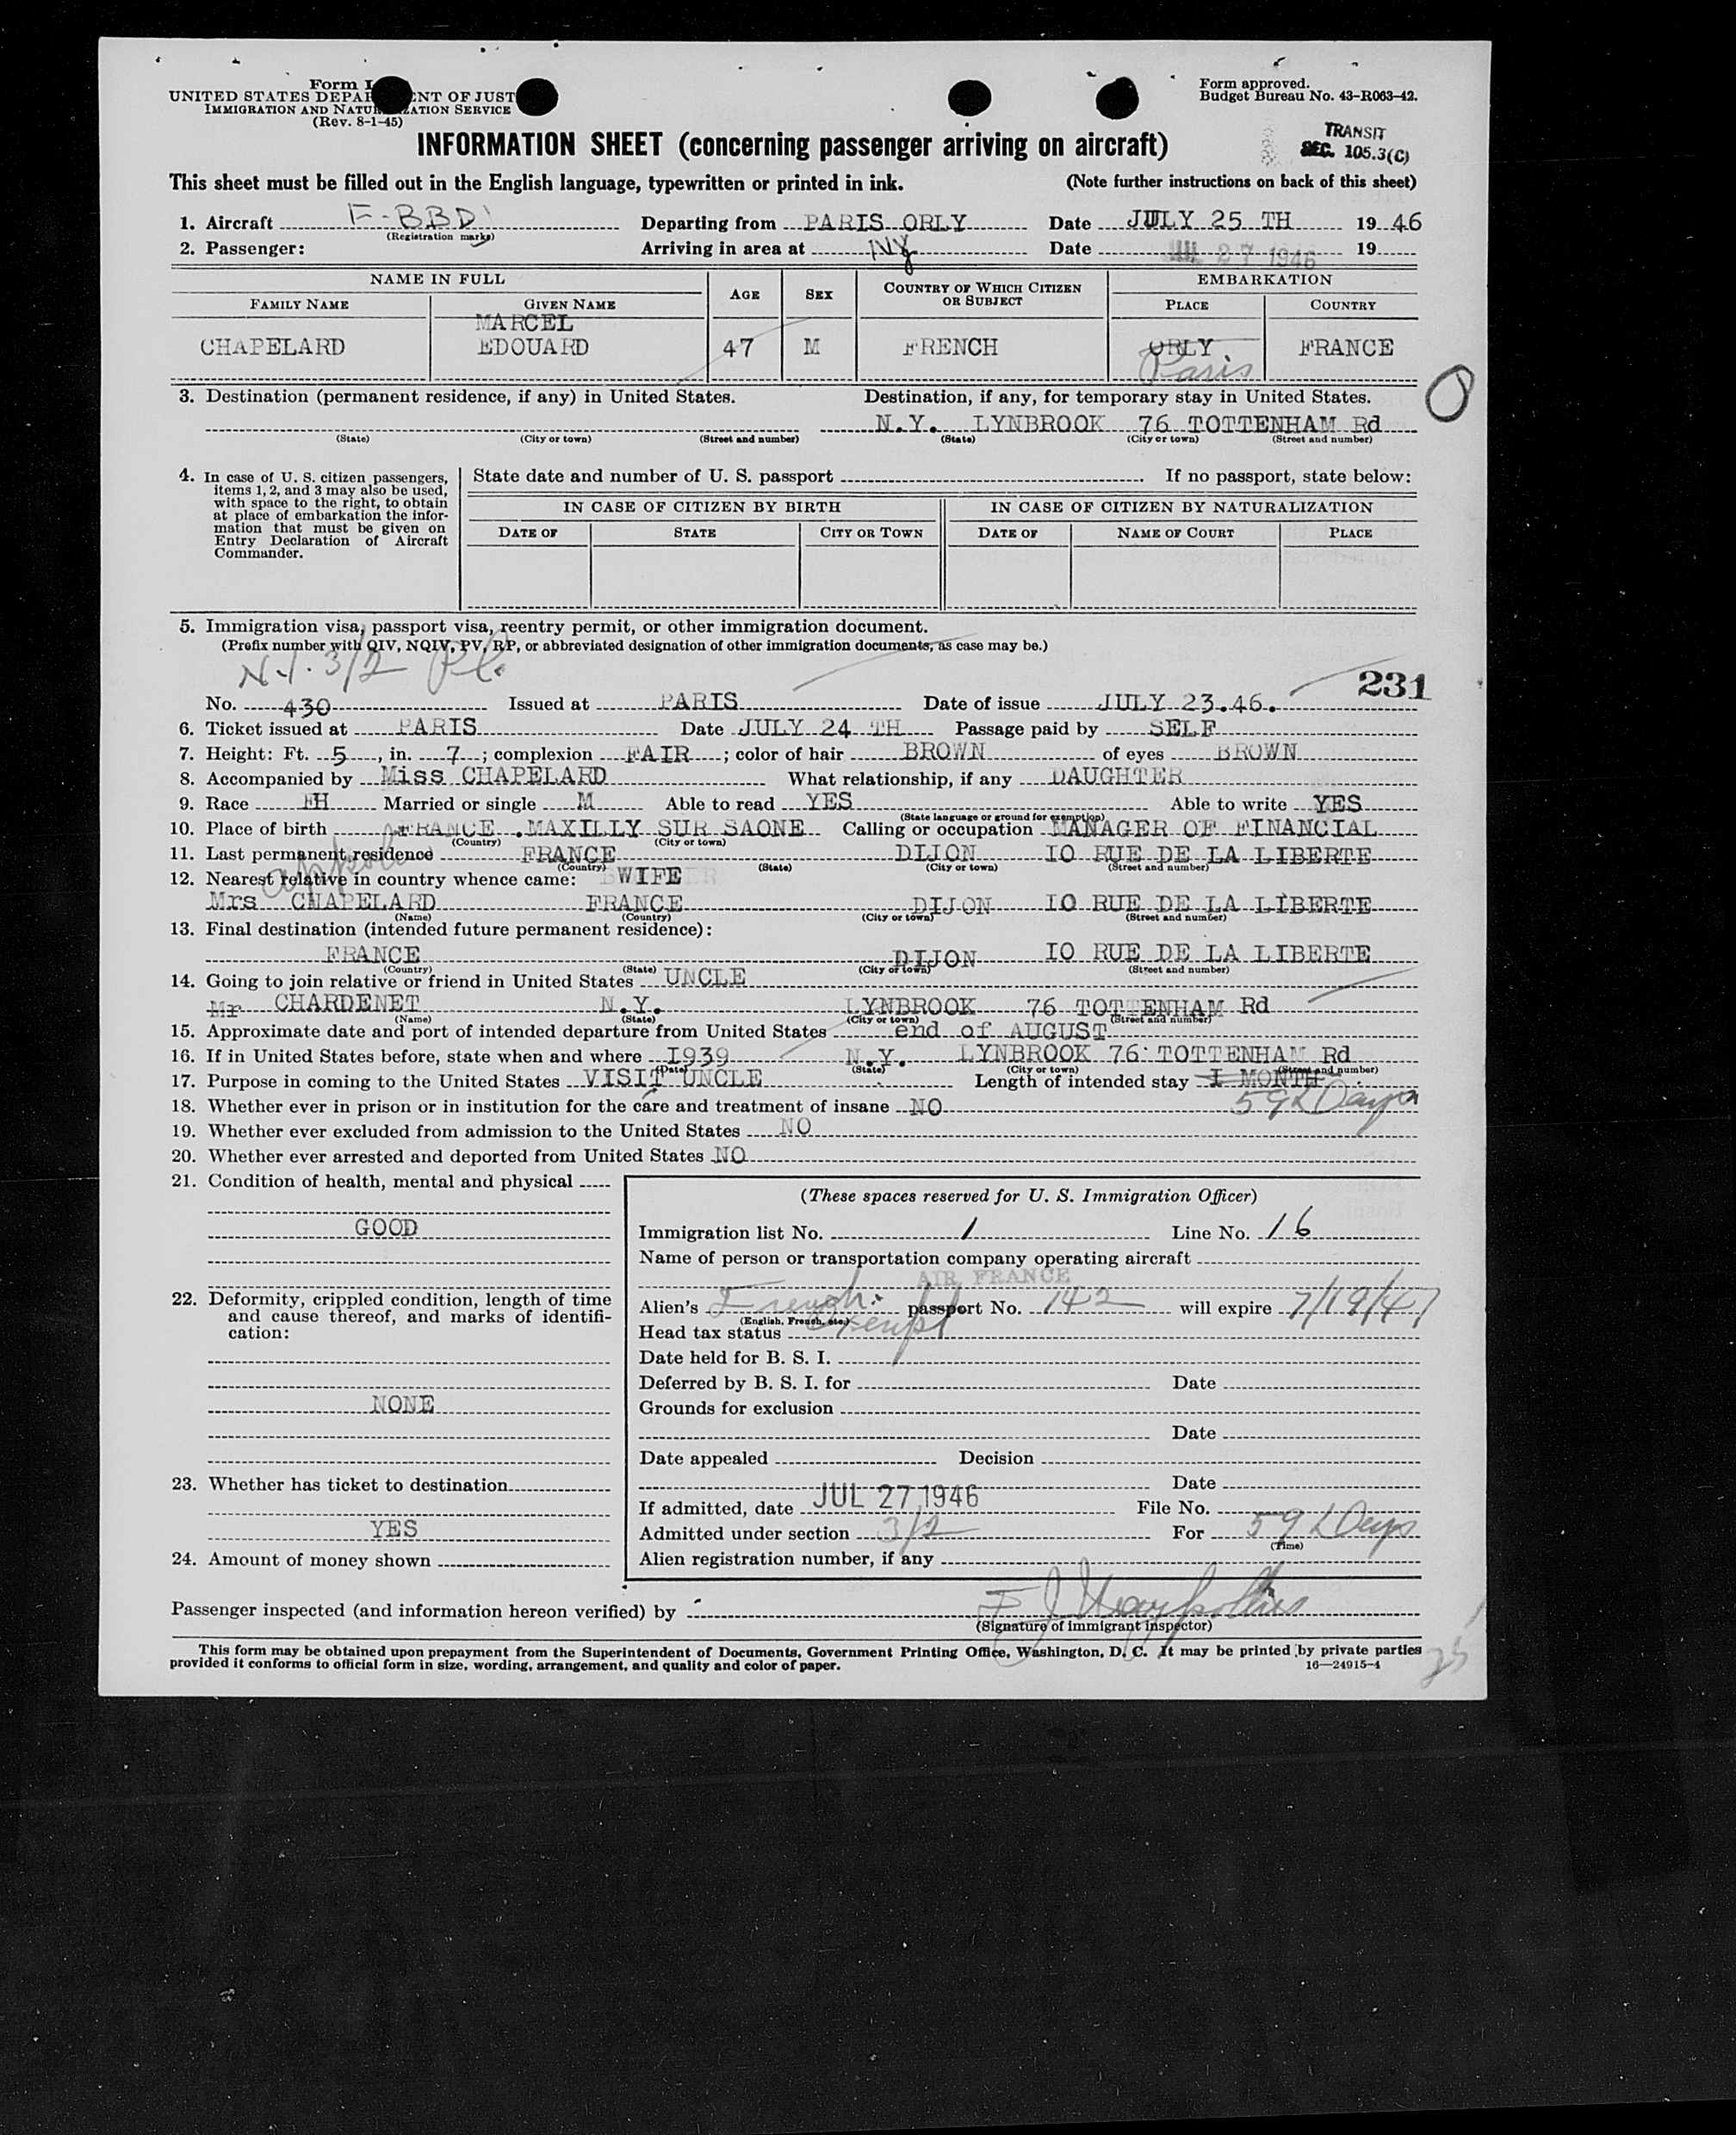 Form I
UNITED STATES DEPA ENT OF JUST
IMMIGRATION AND NATU ZATION SERVICE
(Rev. 8-1-45)
Form approved.
Budget Bureau No. 43-R063-42.
INFORMATION SHEET (concerning passenger arriving on aircraft)
TRANSIT
SEC. 105.3(C)
This sheet must be filled out in the English language, typewritten or printed in ink. (Note further instructions on back of this sheet)
1. Aircraft F-BBD Departing from PARIS ORLY Date JULY 25 TH 19 46
(Registration marks)
2. Passenger: Arriving in area at NY Date JUL 27 1946 19
NAME IN FULL AGE SEX COUNTRY OF WHICH CITIZEN OR SUBJECT EMBARKATION
FAMILY NAME GIVEN NAME PLACE COUNTRY
MARCEL
CHAPELARD EDOUARD 47 M FRENCH ORLY FRANCE
Paris
3. Destination (permanent residence, if any) in United States. Destination, if any, for temporary stay in United States.
N.Y. LYNBROOK 76 TOTTENHAM Rd
(State) (City or town) (Street and number) (State) (City or town) (Street and number)
4. In case of U. S. citizen passengers, items 1, 2, and 3 may also be used, with space to the right, to obtain at place of embarkation the information that must be given on Entry Declaration of Aircraft Commander.
State date and number of U. S. passport If no passport, state below:
IN CASE OF CITIZEN BY BIRTH IN CASE OF CITIZEN BY NATURALIZATION
DATE OF STATE CITY OR TOWN DATE OF NAME OF COURT PLACE
5. Immigration visa, passport visa, reentry permit, or other immigration document.
(Prefix number with QIV, NQIV, PV, RP, or abbreviated designation of other immigration documents, as case may be.)
3/2
231
No. 430 Issued at PARIS Date of issue JULY 23.46.
6. Ticket issued at PARIS Date JULY 24 TH Passage paid by SELF
7. Height: Ft. 5, in. 7; complexion FAIR; color of hair BROWN of eyes BROWN
8. Accompanied by Miss CHAPELARD What relationship, if any DAUGHTER
9. Race FH Married or single M Able to read YES Able to write YES
(State language or ground for exemption)
10. Place of birth FRANCE .MAXILLY SUR SAONE Calling or occupation MANAGER OF FINANCIAL
(Country) (City or town)
11. Last permanent residence FRANCE DIJON IO RUE DE LA LIBERTE
(Country) (State) (City or town) (Street and number)
12. Nearest relative in country whence came: WIFE
Mrs CHAPELARD FRANCE DIJON IO RUE DE LA LIBERTE
(Name) (Country) (City or town) (Street and number)
13. Final destination (intended future permanent residence):
FRANCE DIJON IO RUE DE LA LIBERTE
(Country) (State) (City or town) (Street and number)
14. Going to join relative or friend in United States UNCLE
Mr CHARDENET N.Y. LYNBROOK 76 TOTTENHAM Rd
(Name) (State) (City or town) (Street and number)
15. Approximate date and port of intended departure from United States end of AUGUST
16. If in United States before, state when and where I939 N.Y. LYNBROOK 76 TOTTENHAM Rd
(Date) (State) (City or town) (Street and number)
17. Purpose in coming to the United States VISIT UNCLE Length of intended stay I MONTH
59 Days
18. Whether ever in prison or in institution for the care and treatment of insane NO
19. Whether ever excluded from admission to the United States NO
20. Whether ever arrested and deported from United States NO
21. Condition of health, mental and physical
GOOD
22. Deformity, crippled condition, length of time and cause thereof, and marks of identification:
NONE
23. Whether has ticket to destination
YES
24. Amount of money shown
(These spaces reserved for U. S. Immigration Officer)
Immigration list No. 1 Line No. 16
Name of person or transportation company operating aircraft
AIR FRANCE
Alien's French passport No. 142 will expire 7/19/47
(English, French, etc.)
Head tax status exempt
Date held for B. S. I.
Deferred by B. S. I. for Date
Grounds for exclusion
Date
Date appealed Decision
Date
If admitted, date JUL 27 1946 File No.
Admitted under section 3/2 For 59 Days
(Time)
Alien registration number, if any
Passenger inspected (and information hereon verified) by
(Signature of immigrant inspector)
This form may be obtained upon prepayment from the Superintendent of Documents, Government Printing Office, Washington, D. C. It may be printed by private parties
provided it conforms to official form in size, wording, arrangement, and quality and color of paper. 16—24915-4